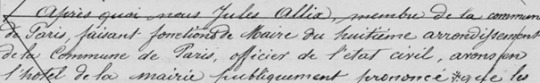 Après quoi nous Jules Allix, membre de la commune
de Paris, faisant fonctions de Maire du huitième arrondissement
de la Commune de Paris, officier de l'état civil, avons en
l'hôtel de la mairie publiquement prononcé que les